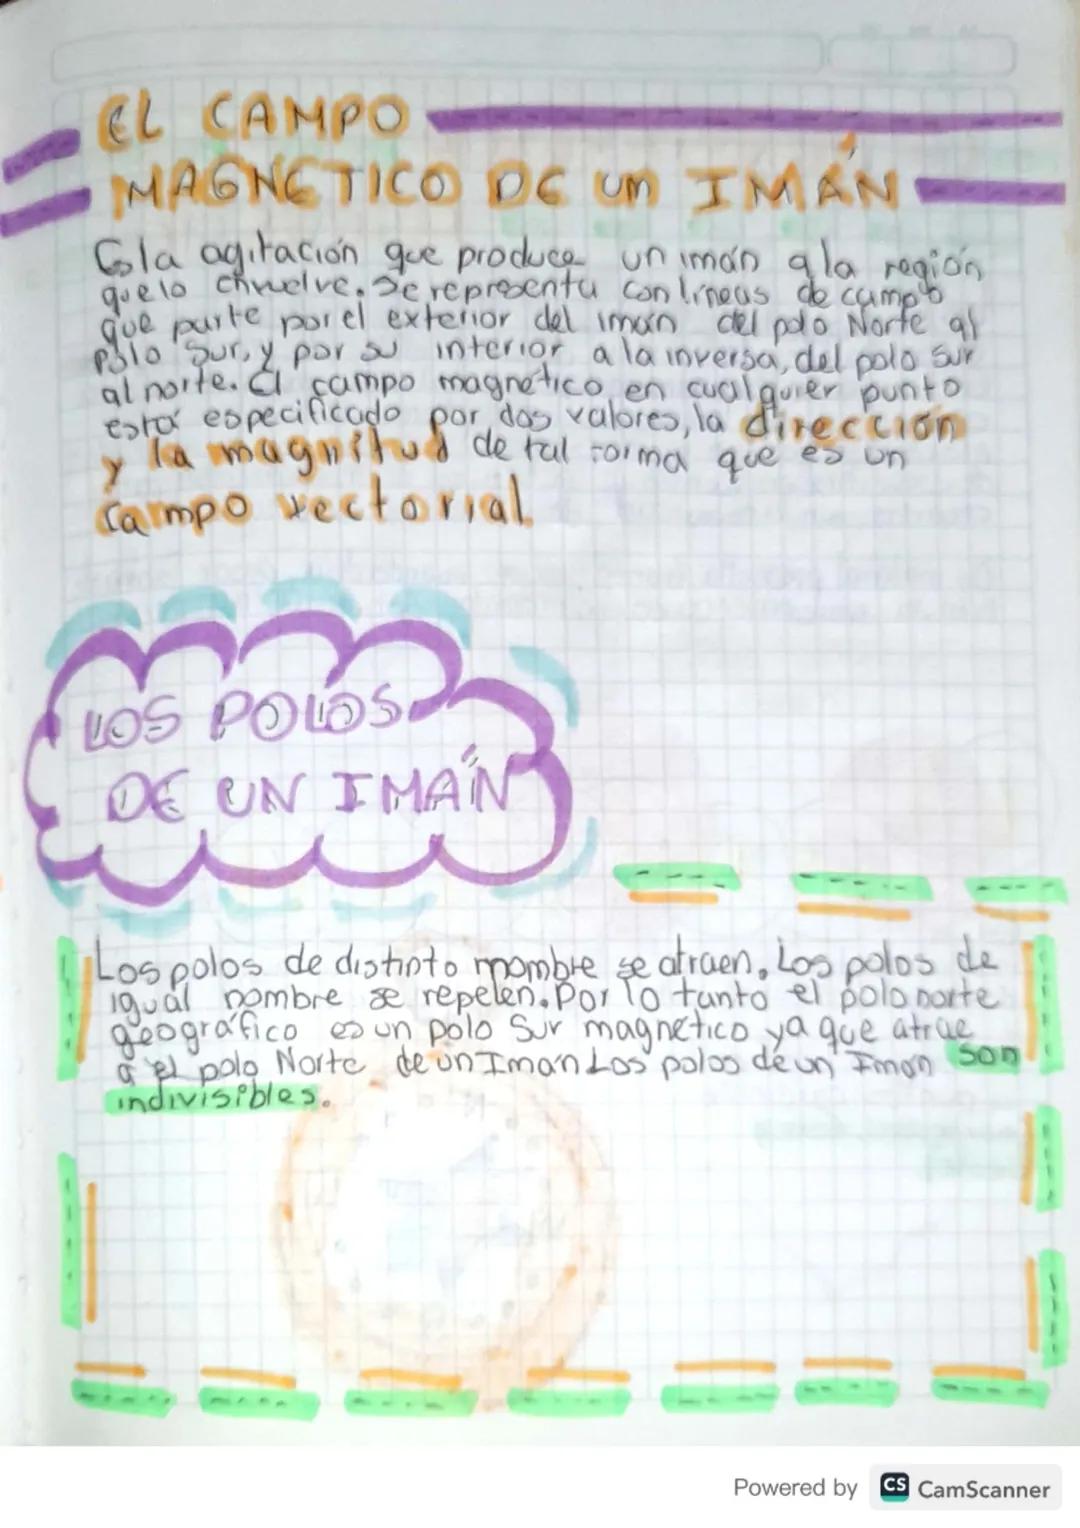 EL CAMPO
MAGNETICO DE UN IMÁN
Es la agitación que produce un imán a la región
que lo envuelve. Se representa con líneas de campo
que parte por el exterior del imán del polo Norte al
polo Sur, y por su interior a la inversa, del polo sur
al norte. El campo magnético en cualquier punto
está especificado por dos valores, la dirección
y la magnitud de tal forma que es un
campo vectorial.
LOS POLOS
DE UN IMAN
Los polos de distinto nombre se atraen. Los polos de
igual nombre se repelen. Por lo tanto el polo norte
geográfico es un polo Sur magnético ya que atrae
a el polo Norte de un Imán Los polos de un Iman son
indivisibles.
Powered by CS CamScanner